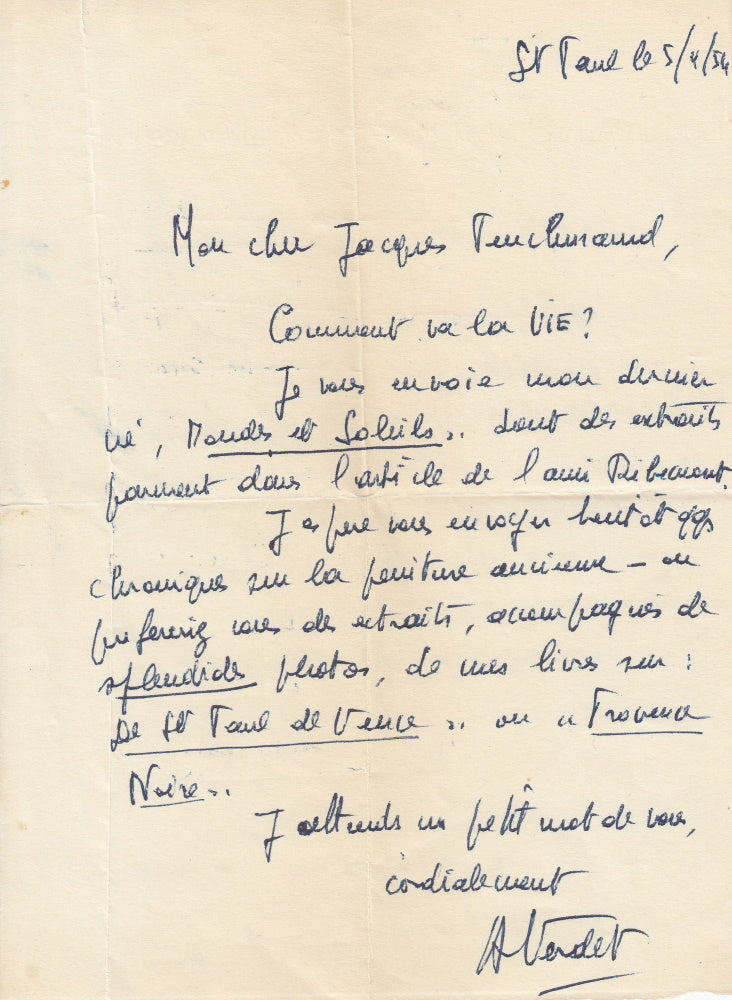 St Paul le 5/4/54
Mon cher Jacques
Comment va la VIE ?
Je vous envoie mon dernier
né, Mondes et Soleils .. dont des extraits
parurent dans l'article de l'ami Ribemont.
J'espère vous envoyer bientôt qqs
chroniques sur la peinture ancienne – ou
préfereriez vous des extraits, accompagnés de
splendides photos, de mes livres sur :
De St Paul de Vence .. ou " Provence
Noire ..
J'attends un petit mot de vous,
cordialement
A Verdet